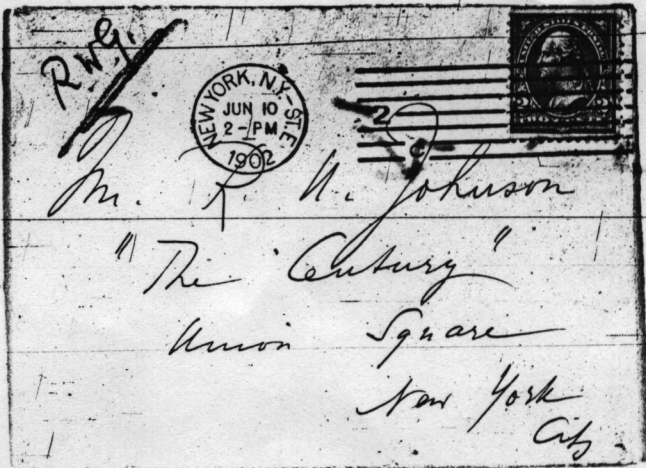 R.W.G.
NEW YORK, N.Y.-ST.E.
JUN 10
2-PM
1902
2
C
Mr. R. U. Johnson
"The Century"
Union Square
New York
City.